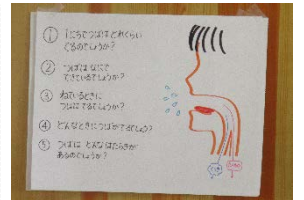 ① 1にちでつばは どれくらい
でるのでしょうか?
② つばは なにで
できているでしょうか?
③ ねているときに
つばは でるでしょうか?
④ どんなときにつばがでるでしょう?
⑤ つばに どんなはたらきが
あるのでしょうか?